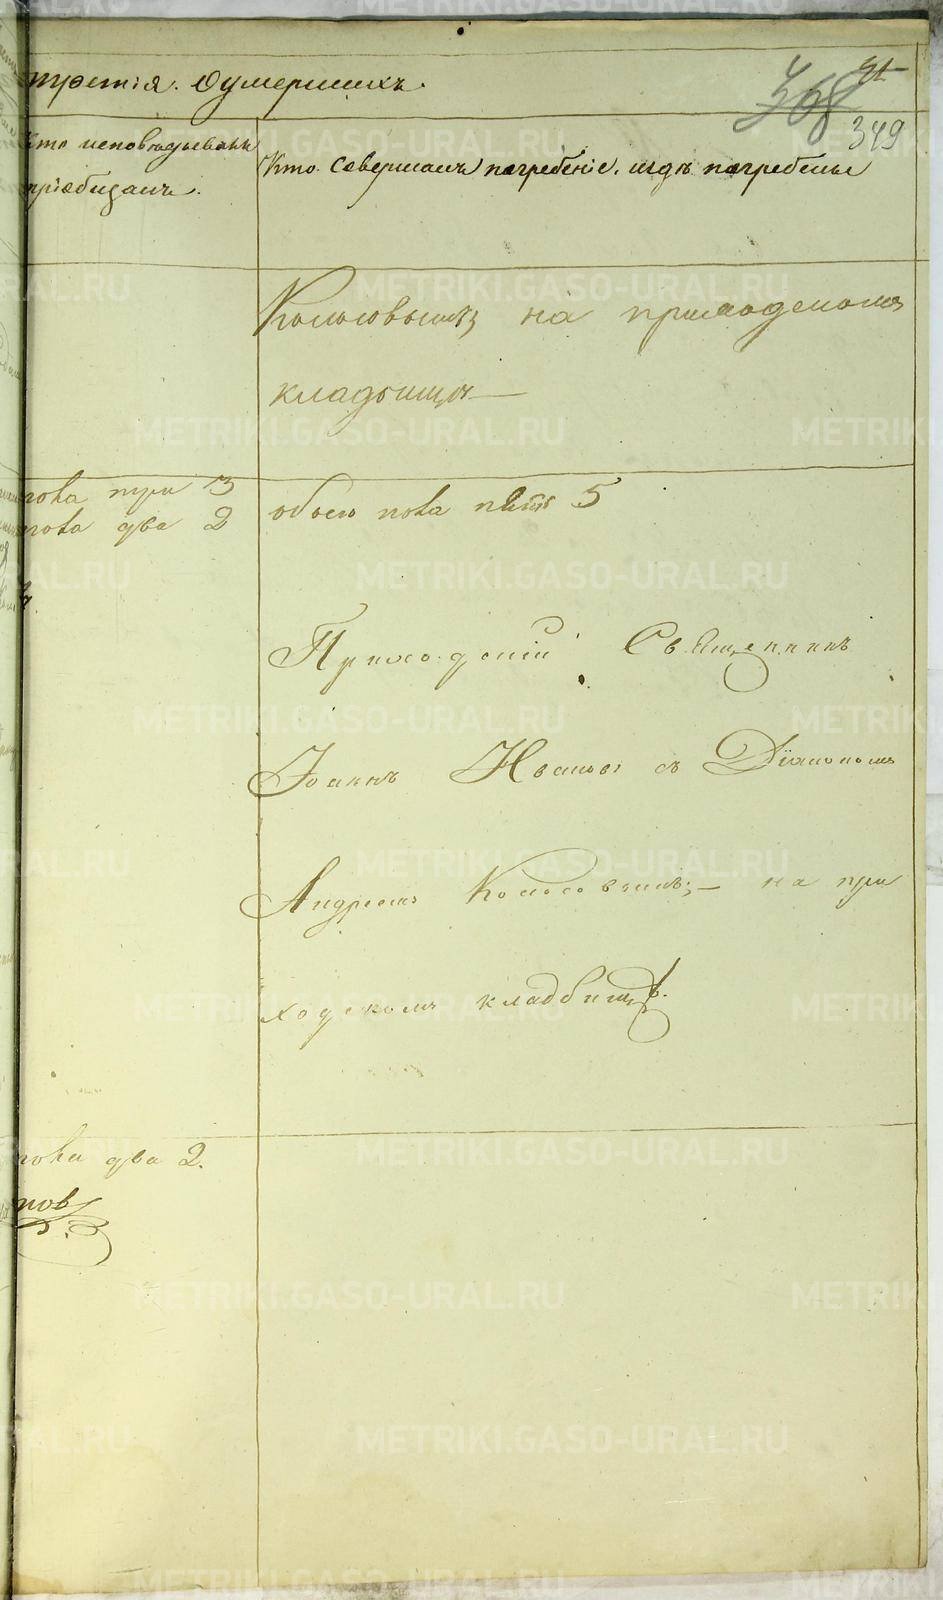 третія. О умершихъ.
31
368
349
Кто исповѣдывалъ
пріобщалъ.
Кто совершалъ погребеніе, и гдѣ погребены
Колосовымъ, на приходскомъ
кладбищѣ —
пола три 3
пола два 2
обоего пола пять 5
Приходскій Священникъ
Іоаннъ Ивановъ съ Діакономъ
Андреемъ Колосовымъ; — на при
ходскомъ кладбищѣ.
пола два 2.
пов
METRIKI.GASO-URAL.RU